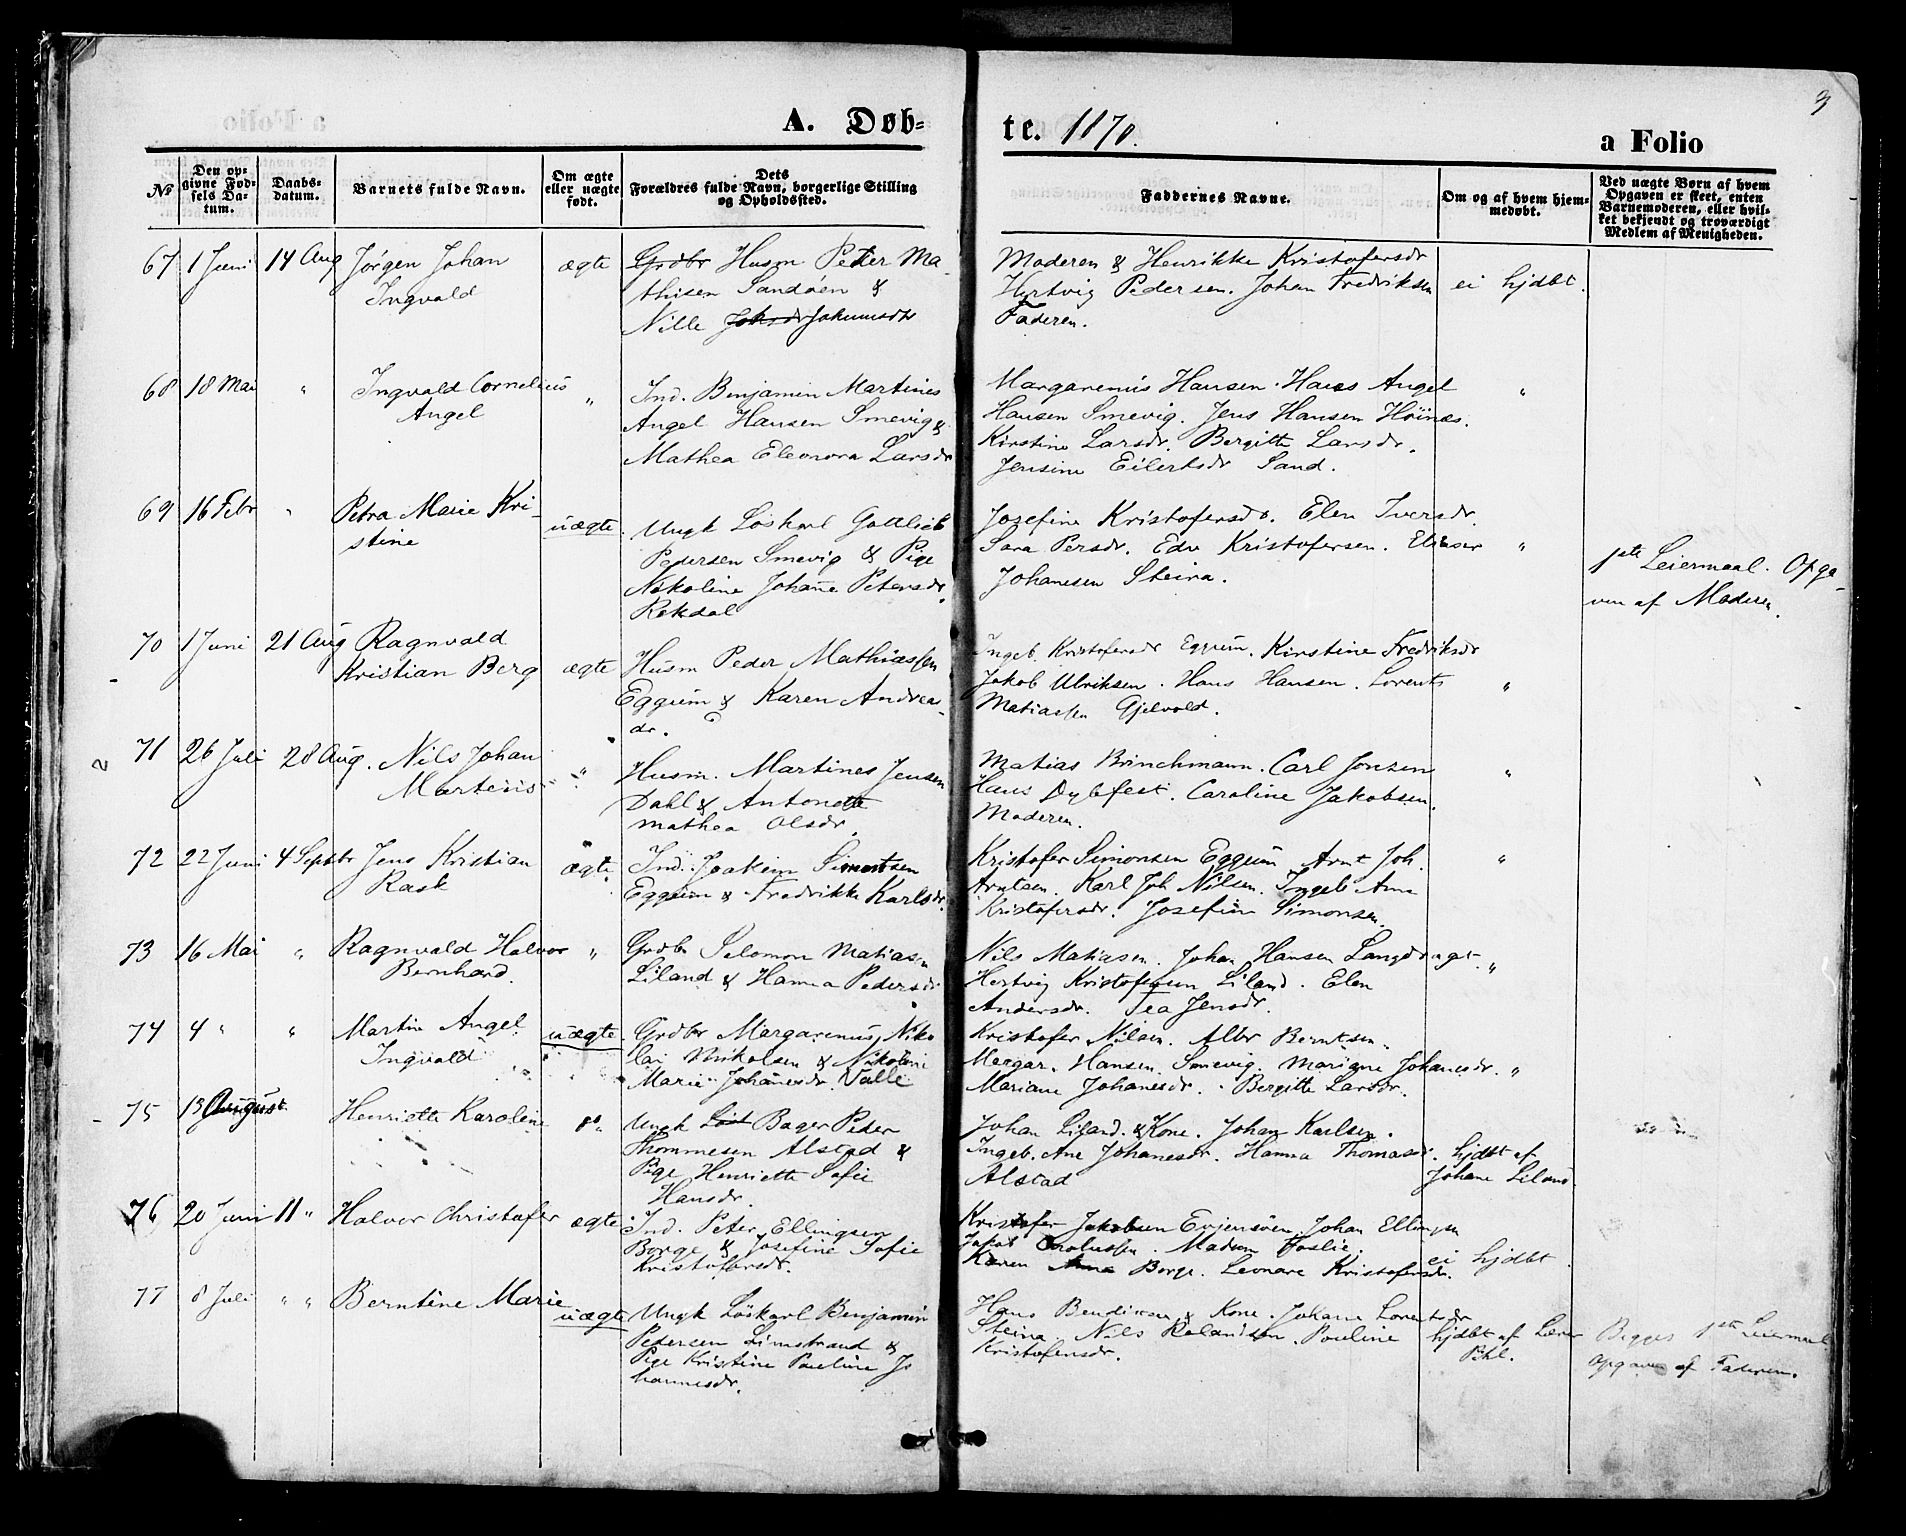 3
A. Døb-
te. 1870.
a Folio
№
Den op-
givne Fød-
sels Da-
tum.
Daabs-
datum.
Barnets fulde Navn.
Om ægte
eller uægte
født.
Dets
Forældres fulde Navn, borgerlige Stilling
og Opholdssted.
Faddernes Navne.
Om og af hvem hjem-
medøbt.
Ved uægte Børn af hvem
Opgaven er skeet, enten
Barnemoderen, eller hvil-
ket bekjendt og troværdigt
Medlem af Menigheden.
67 1 Juni 14 Aug Jørgen Johan
Ingvald
ægte
Grdbr Husm Peder Ma-
thisen Sandøen &
Nille Johsdr Johannsdtr
Moderen & Henrikke Kristofersdr
Hertvig Pedersen. Johan Fredriksen
Faderen.
ei hjdbt.
68 18 Mai " Ingvald Cornelius
Angel
"
Ind. Benjamin Martines
Angel Hansen Smevig &
Mathea Eleonora Larsdr
Margarenus Hansen. Hans Angel
Hansen Smevig. Jens Hansen Høinæs.
Kirstine Larsdr. Bergitte Larsdr.
Jensine Eilertsdr Sand.
"
69 16 Febr " Petra Marie Kri-
stine
uægte
Ungk Løskarl Gottlieb
Pedersen Smevig & Pige
Nikoline Johane Petersdr
Rekdal
Josefine Kristofersdr. Elen Iversdr.
Sara Persdr. Edv Kristofersen. Elieser
Johanesen Steira.
"
1ste Leiermaal. Opgi-
ven af Moderen.
70 1 Juni 21 Aug Ragnvald
Kristian Berg
ægte
Husm Peder Mathiassen
Eggum & Karen Andreas-
dr.
Ingeb. Kristofersdr Eggum. Kirstine Fredriksdr
Jakob Ulriksen. Hans Hansen. Lorents
Matiassen Gjelvold.
"
2
71 26 Juli 28 Aug. Nils Johan
Martinus
"
Husm. Martines Jensen
Dahl & Antonette
Mathea Olsdr.
Matias Brinchmann. Carl Jonsen
Hans Dybfest. Caroline Jakobsen.
Moderen.
"
72 22 Juni 4 Septbr Jens Kristian
Rask
ægte
Ind. Joakim Simonsen
Eggum & Fredrikke Karlsdr.
Kristofer Simonsen Eggum Arnt Joh.
Arntsen. Karl Joh Nilsen. Ingeb Ane
Kristofersdr. Josefine Simonsen.
"
73 16 Mai " Ragnvald Halvor
Bernhard.
"
Grdbr Salomon Matiasen
Liland & Hanna Pedersdr
Nils Matiasen. Johan Hansen
Hertvig Kristofersen Liland. Elen
Andersdr. Tea Jensdr.
"
74 4 " " Martin Angel
Ingvald
uægte
Grdbr Margarenus Niko-
lai Nikolsen & Nikoline
Marie Johanesdr. Valle
Kristofer Nilsen. Albr Berntsen.
Margar. Hansen. Smevig. Marigne Johanesdr.
Mariane Johanesdr. Bergitte Larsdr.
"
75 13 August Henriette Karoline
do
Ungk Løst Bager Peder
Thommesen Alstad &
Pige Henriette Sofie
Hansdr.
Johan Liland & Kone. Johan Karlsen.
Ingeb. Ane Johanesdr. Hanna Thomasdr.
Alstad
hjdbt af
Johan Liland
76 20 Juni 11 " Halvor Christofer
ægte
Ind. Peter Ellingsen
Borge & Josefine Sofie
Kristofersdr.
Kristofer Jakobsen Evjensøen Johan Ellingsen
Jakob. Madam Foslie.
Karen Borge. Leonare Kristofersdr.
ei hjdbt.
77 8 Juli " " Berntine Marie
uægte
Ungk Løskarl Benjamin
Pedersen Limstrand &
Pige Kristine Pauline Jo
hannesdr.
Hans Bendiksen & Kone. Johane Lorentsdr
Steina. Nils Rolandsen. Pauline
Kristofersdr.
hjdbt af Lærer
Phl.
Begges 1ste Leiermaal
Opgaven af Faderen.